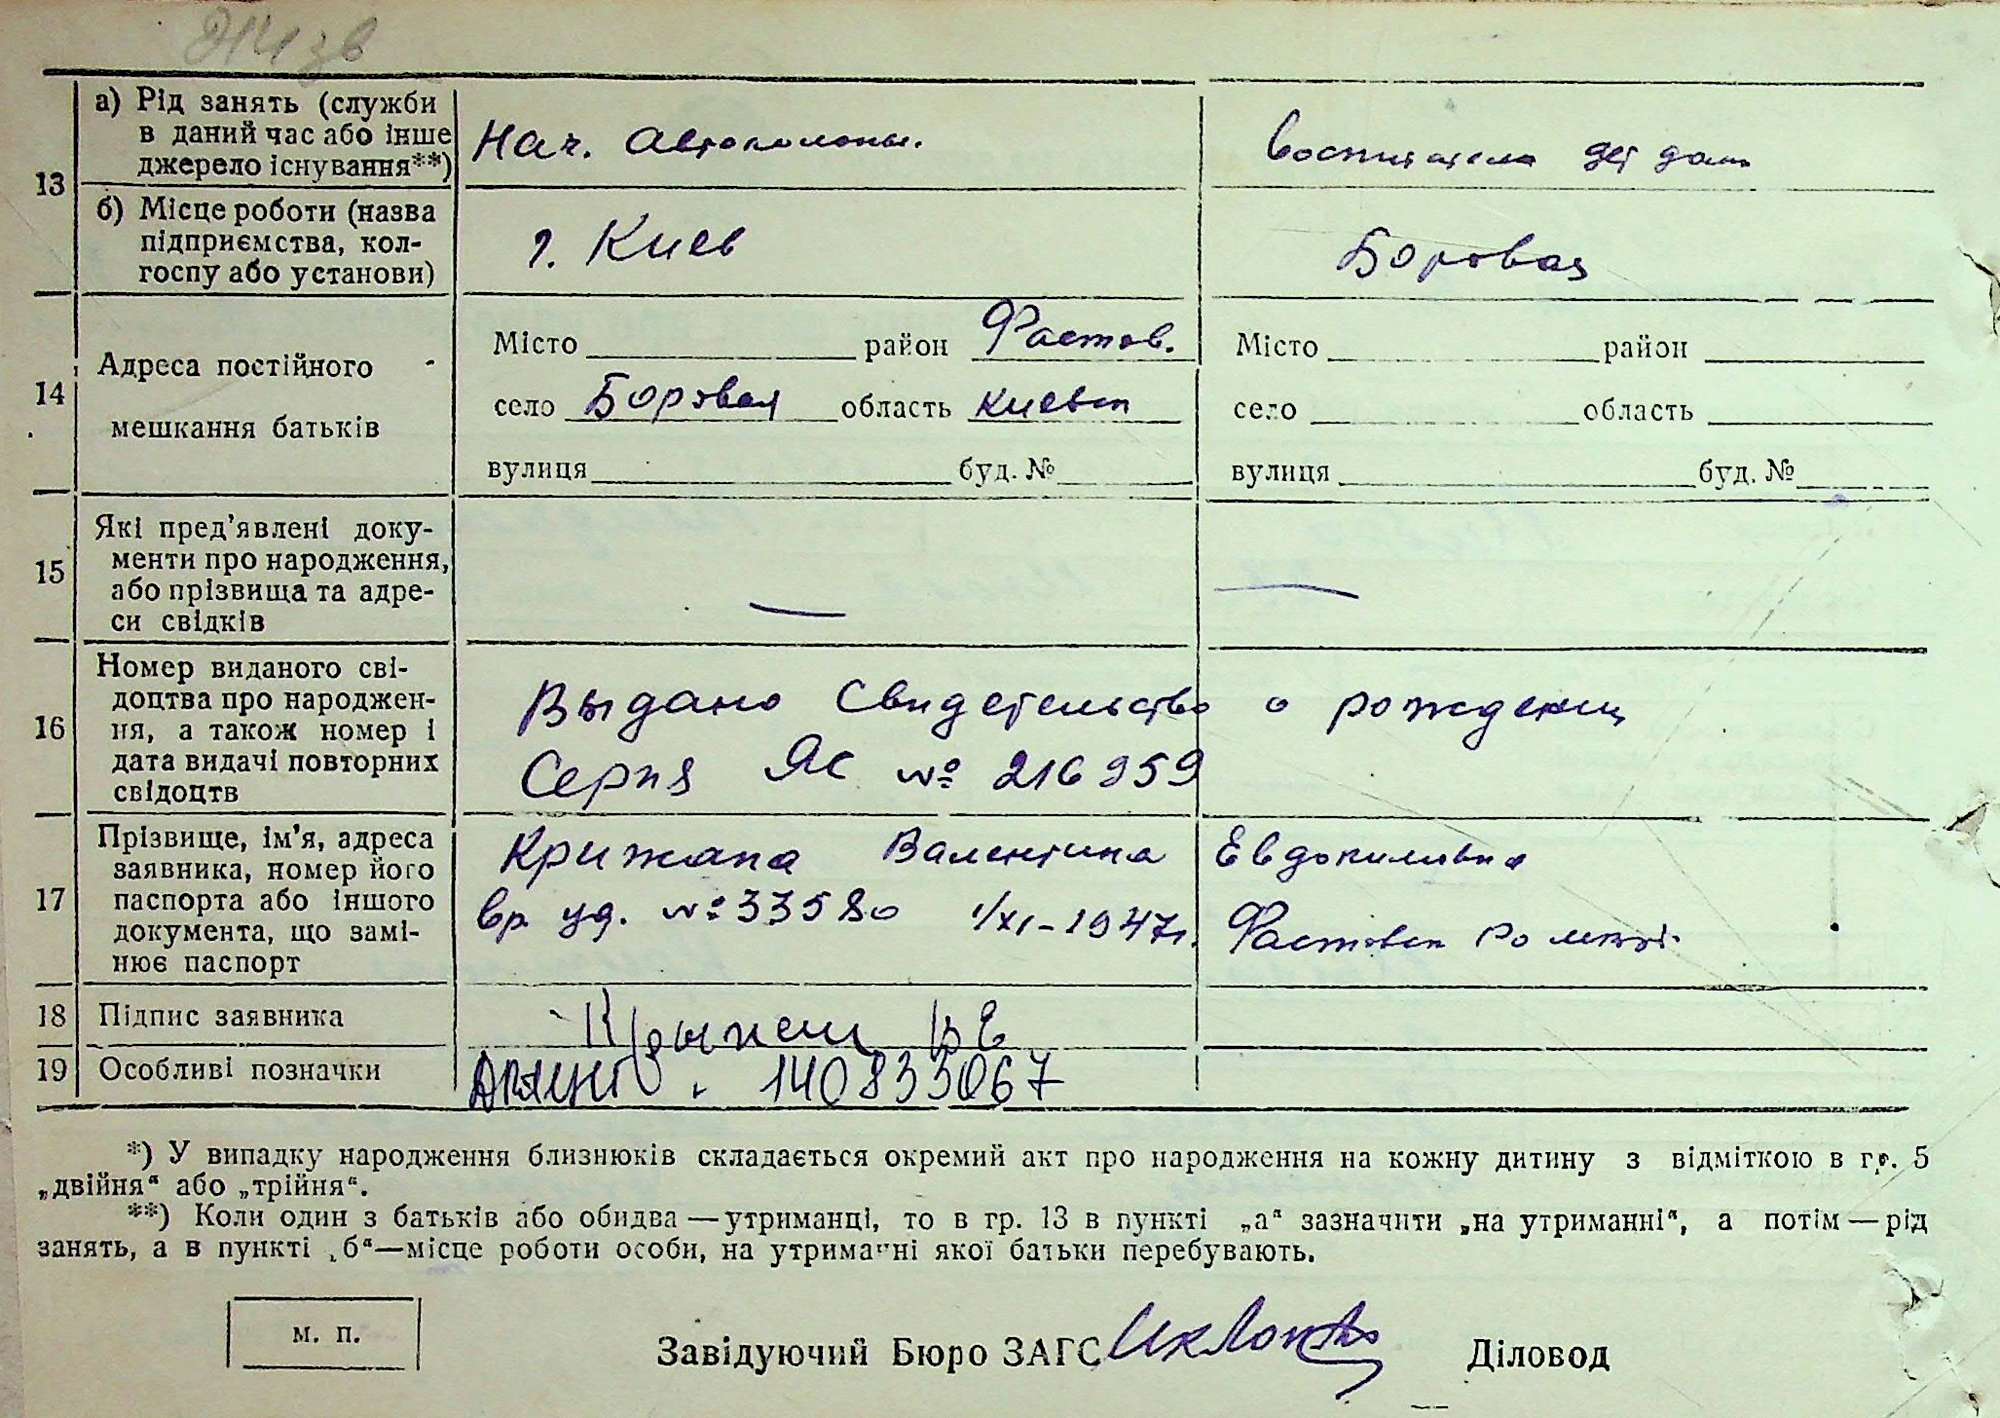 13
а) Рід занять (служби
в даний час або інше
джерело існування**)
Нач. автоколоны.
воспитатель дет дома
б) Місце роботи (назва
підприємства, кол-
госпу або установи)
г. Киев
Боровая
14
Адреса постійного
мешкання батьків
Місто район Фастов.
село Боровая область Киевск
вулиця буд. №
Місто район
село область
вулиця буд. №
15
Які пред'явлені доку-
менти про народження,
або прізвища та адре-
си свідків
—
—
16
Номер виданого сві-
доцтва про народжен-
ня, а також номер і
дата видачі повторних
свідоцтв
Выдано Свидетельство о рождении
Серия ЯС № 216959
17
Прізвище, ім'я, адреса
заявника, номер його
паспорта або іншого
документа, що замі-
нює паспорт
Крижана Валентина Евдокимовна
вр уд. № 33580 1/XI-1947г. Фастовск
18
Підпис заявника
ВЕ
19
Особливі позначки
140833067
*) У випадку народження близнюків складається окремий акт про народження на кожну дитину з відміткою в гр. 5
„двійня“ або „трійня“.
**) Коли один з батьків або обидва — утриманці, то в гр. 13 в пункті „а“ зазначити „на утриманні“, а потім — рід
занять, а в пункті „б“—місце роботи особи, на утриманні якої батьки перебувають.
м. п.
Завідуючий Бюро ЗАГС
Діловод